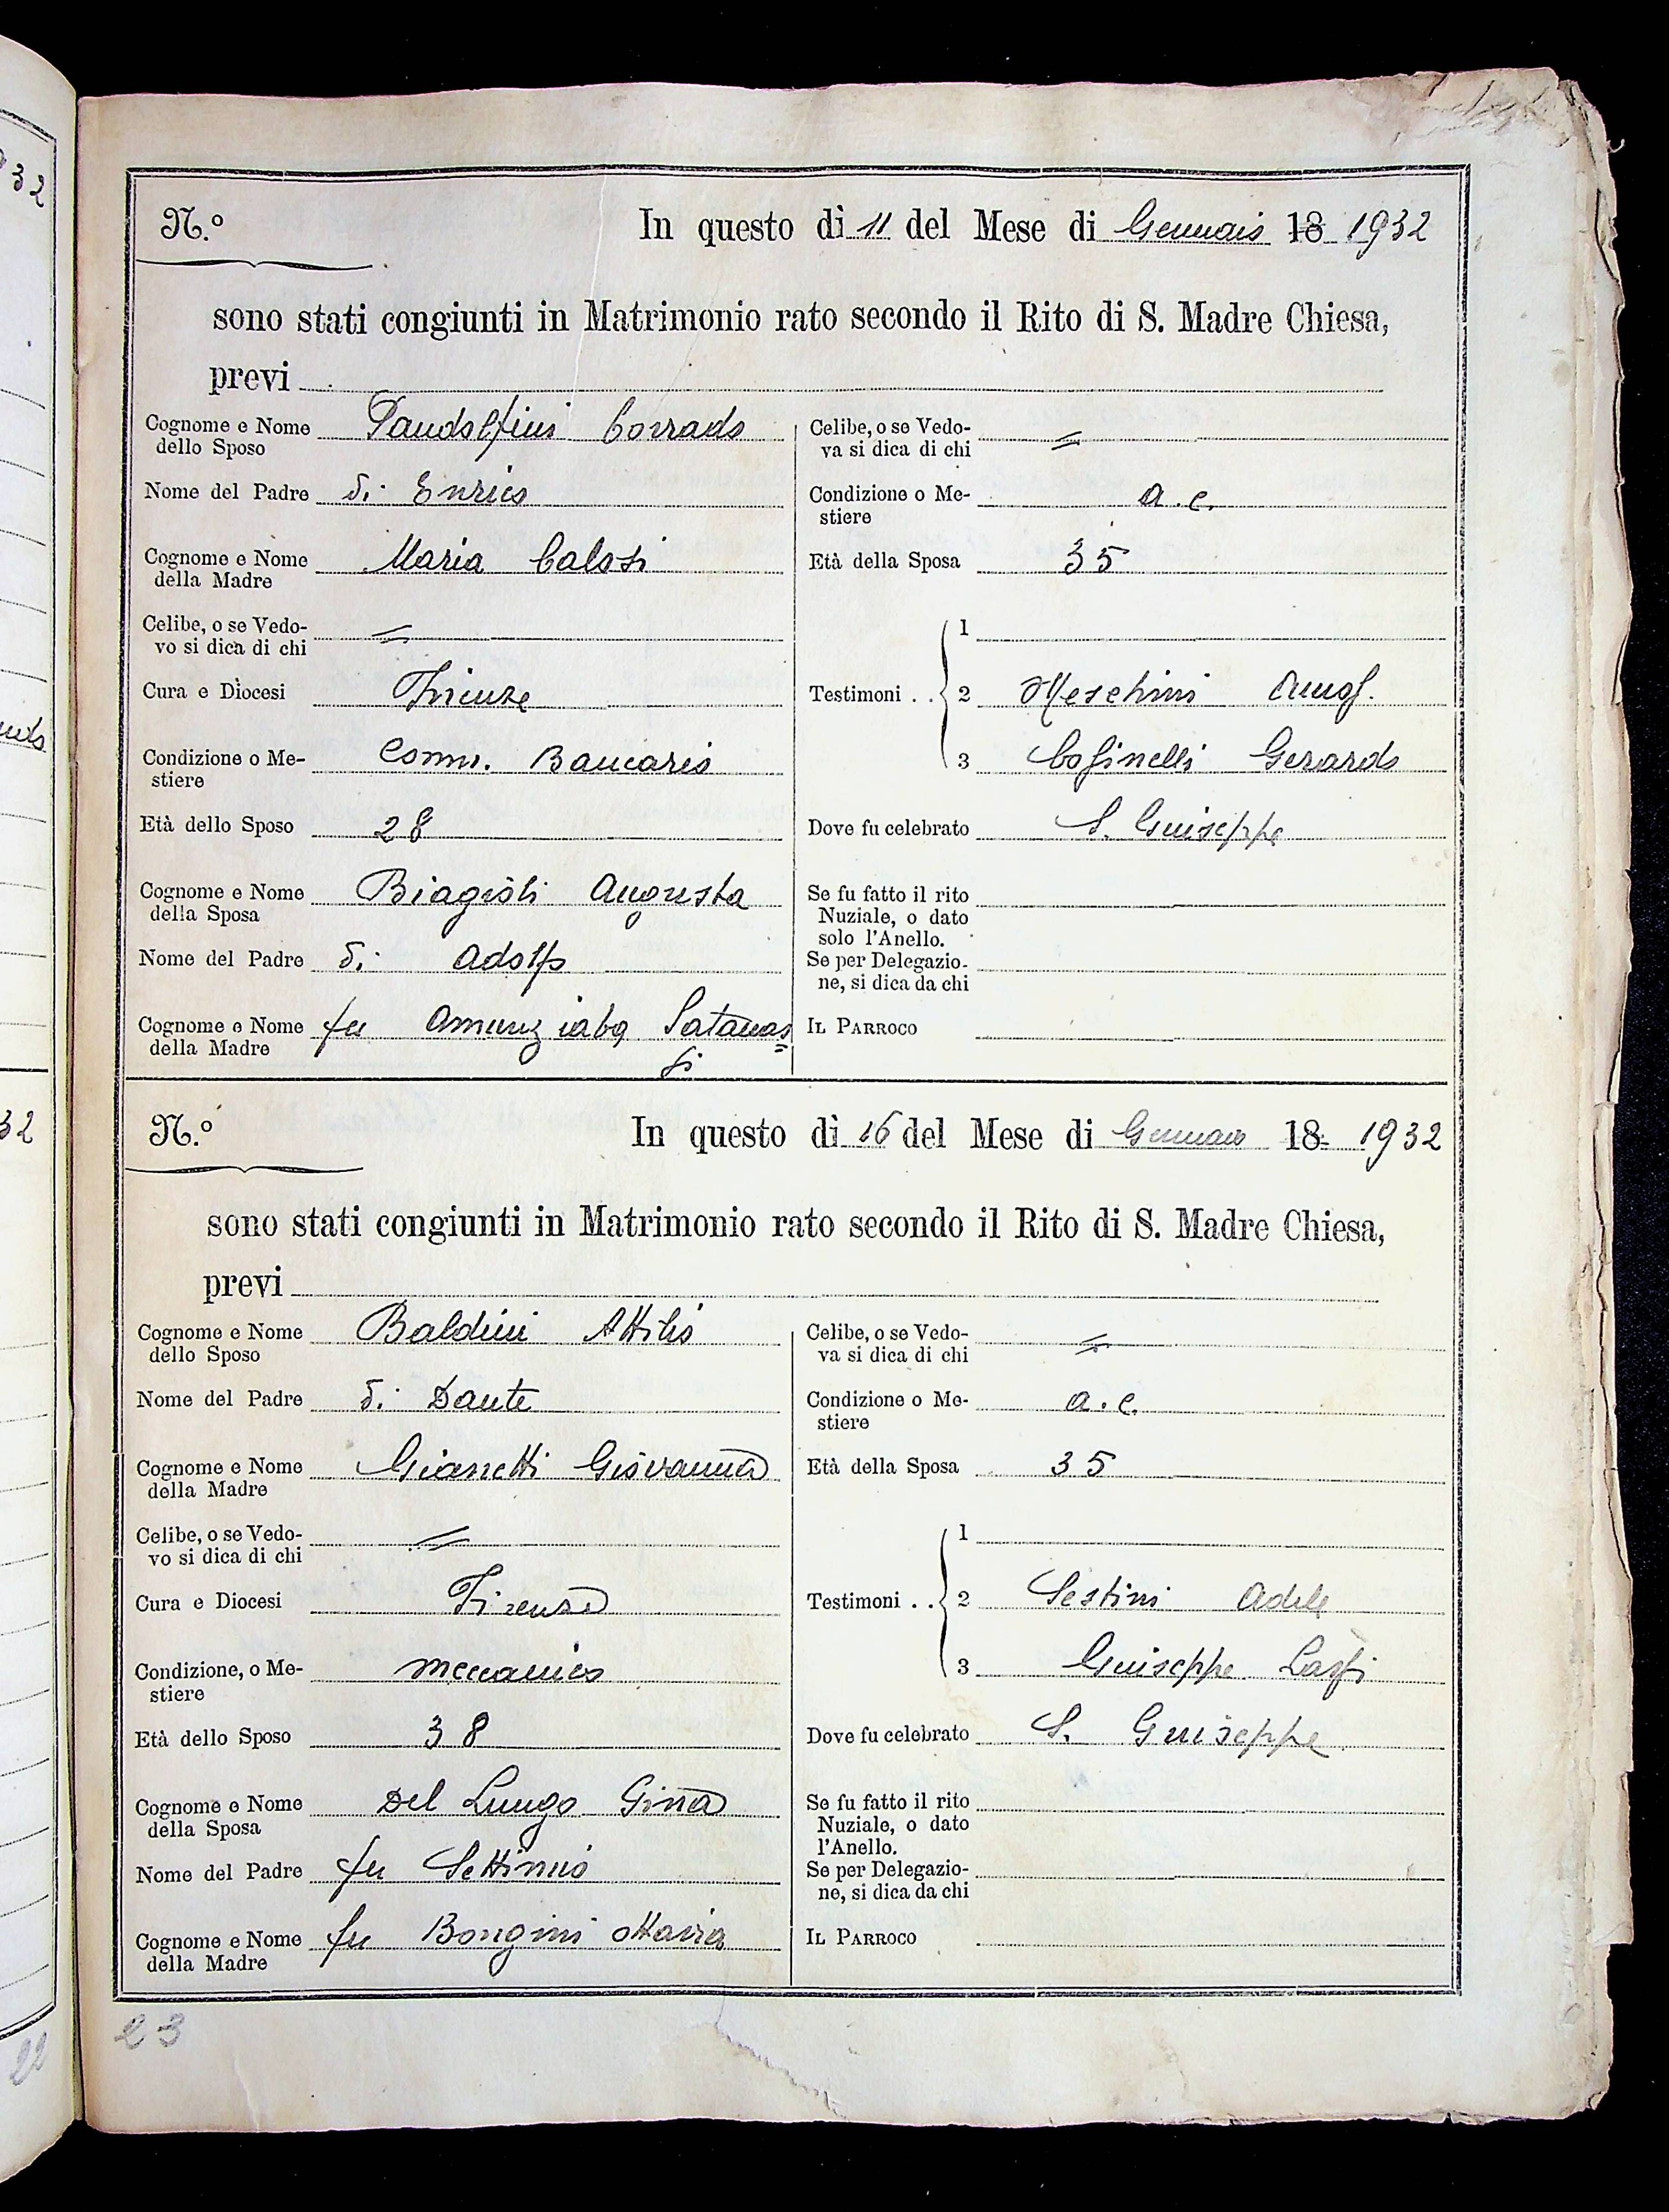 N.º In questo dì 11 del Mese di Gennaio 18 1932
sono stati congiunti in Matrimonio rato secondo il Rito di S. Madre Chiesa,
previ
Cognome e Nome dello Sposo Pandolfini Corrado
Nome del Padre di Enrico
Cognome e Nome della Madre Maria Calosi
Celibe, o se Vedovo si dica di chi =
Cura e Diocesi Firenze
Condizione o Mestiere Comm. Bancario
Età dello Sposo 28
Cognome e Nome della Sposa Biagioli Augusta
Nome del Padre di Adolfo
Cognome e Nome della Madre fu
Celibe, o se Vedova si dica di chi =
Condizione o Mestiere a. c.
Età della Sposa 35
Testimoni . . 1
2 Meschini
3 Gerardo
Dove fu celebrato S. Giuseppe
Se fu fatto il rito Nuziale, o dato solo l'Anello.
Se per Delegazione, si dica da chi
IL PARROCO
N.º In questo dì 16 del Mese di Gennaio 18 1932
sono stati congiunti in Matrimonio rato secondo il Rito di S. Madre Chiesa,
previ
Cognome e Nome dello Sposo Baldini Attilio
Nome del Padre di Dante
Cognome e Nome della Madre Giannetti Giovanna
Celibe, o se Vedovo si dica di chi =
Cura e Diocesi Firenze
Condizione, o Mestiere meccanico
Età dello Sposo 38
Cognome e Nome della Sposa Del Lungo Gina
Nome del Padre fu Settimio
Cognome e Nome della Madre fu Bongini Ottavia
Celibe, o se Vedova si dica di chi =
Condizione o Mestiere a. c.
Età della Sposa 35
Testimoni . . 1
2 Sestini Adele
3 Giuseppe
Dove fu celebrato S. Giuseppe
Se fu fatto il rito Nuziale, o dato l'Anello.
Se per Delegazione, si dica da chi
IL PARROCO
23